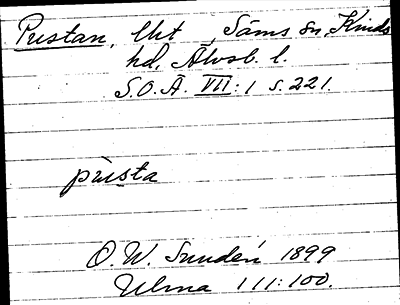 Pustan, lht, Säms sn, Kinds
hd, Älvsb. l.
S.O.Ä. VII:1 s. 221.
pùsta
O.W. Sundén 1899
Ulma 111:100.